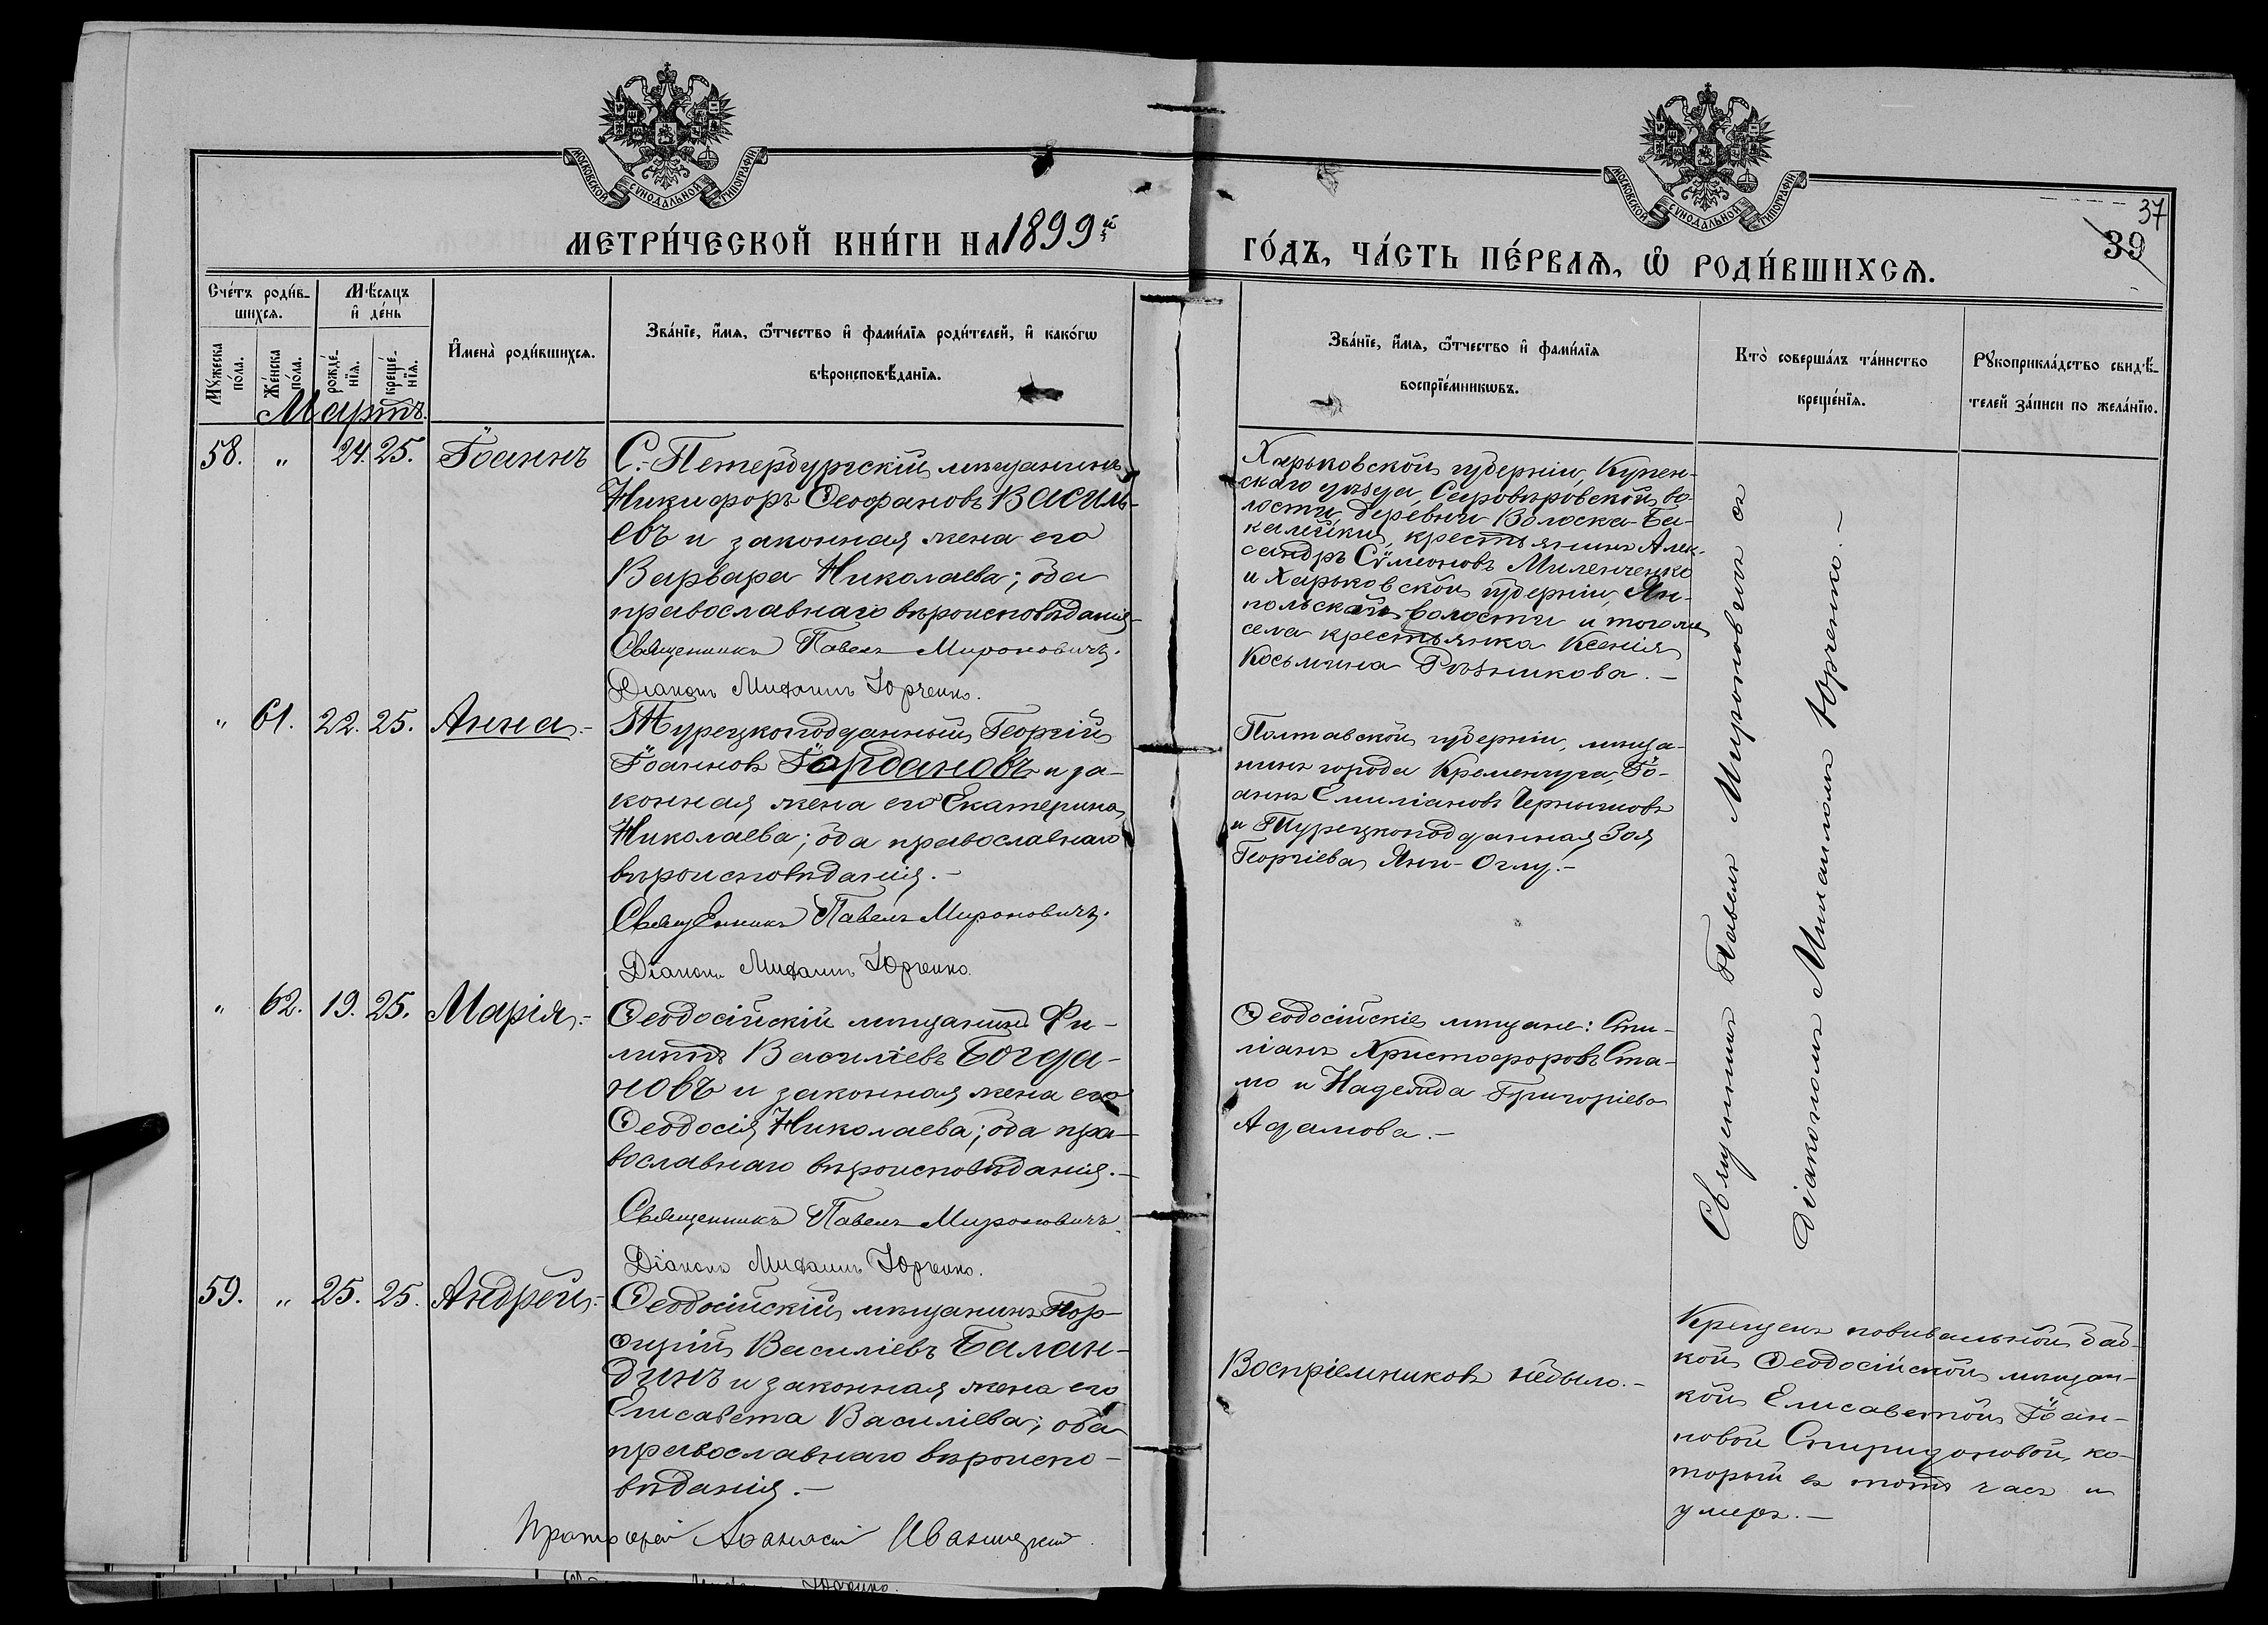 МОСКОВСКОЙ СѴНОДАЛЬНОЙ ТИПОГРАФІИ
МОСКОВСКОЙ СѴНОДАЛЬНОЙ ТИПОГРАФІИ
МЕТРИ́ЧЕСКОЙ КНИ́ГИ НА 1899й
ГО́ДЪ, ЧА́СТЬ ПЕ́РВАѦ, Ѡ҆ РОДИ́ВШИХСѦ.
37
39
Сче́тъ роди́в-
шихсѧ.
Мꙋ́жеска по́ла.
Же́нска по́ла.
Мѣ́сѧцъ и҆ де́нь
рожде́-
нїѧ.
креще́-
нїѧ.
И҆мена̀ роди́вшихсѧ.
Зва́нїе, и҆́мѧ, ѻ҆́тчество и҆ фами́лїѧ роди́телей, и҆ како́гѡ
вѣроисповѣ́данїѧ.
Зва́нїе, и҆́мѧ, ѻ҆́тчество и҆ фами́лїѧ
воспрїе́мникѡвъ.
Кто̀ соверша́лъ та́инство
креще́нїѧ.
Рꙋкоприкла́дство свидѣ́-
телей за́писи по жела́нїю.
Мартъ.
58. " 24. 25. Іоаннъ
С.-Петербургскій мѣщанинъ
Никифоръ Ѳеофановъ Василь-
евъ и законная жена его
Варвара Николаева; оба
православнаго вѣроисповѣданія
Священникъ Павелъ Мироновичъ.
Діаконъ Михаилъ Юрченко.
Харьковской губерніи, Купен-
скаго уѣзда,
волости деревни
крестьянинъ Алек-
сандръ Сѵмеоновъ Миленченко
и Харьковской губерніи, Ям-
польской волости и того же
села крестьянка Ксенія
Косьмина Рѣзникова.-
" 61. 22. 25. Анна.-
Турецкоподданный Георгій
Іоанновъ Іордановъ и за-
конная жена его Екатерина
Николаева; оба православнаго
вѣроисповѣданія.-
Священникъ Павелъ Мироновичъ.
Діаконъ Михаилъ Юрченко.
Полтавской губерніи, мѣща-
нинъ города Кременчуга, Іо-
аннъ Емиліановъ Чернышовъ
и Турецкоподданная Зоя
Георгіева Яни-Оглу.-
" 62. 19. 25. Марія.-
Ѳеодосійскій мѣщанинъ Фи-
липпъ Василіевъ Богда-
новъ и законная жена его
Ѳеодосія Николаева; оба пра-
вославнаго вѣроисповѣданія.-
Священникъ Павелъ Мироновичъ.
Діаконъ Михаилъ Юрченко.
Ѳеодосійскіе мѣщане: Сти-
ліанъ Христофоровъ Ста-
мо и Надежда Григоріева
Адамова.-
Священникъ Павелъ Мироновичъ съ
діакономъ Михаиломъ Юрченко.-
59. " 25. 25. Андрей.-
Ѳеодосійскій мѣщанинъ Пор-
фирій Василіевъ Балан-
динъ и законная жена его
Елисавета Василіева; оба
православнаго вѣроиспо-
вѣданія.-
Протоіерей Аѳанасій Иваницкій.
Воспріемниковъ небыло.-
Крещенъ повивальной баб-
кой Ѳеодосійской мѣщан-
кой Елисаветой Іоан-
новой Спиридоновой, ко-
торый въ тотъ часъ и
умеръ.-
Юрченко.